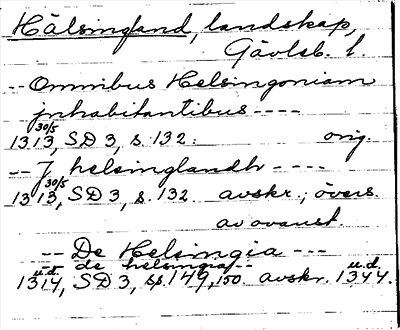 Hälsingland, landskap,
Gävleb. l.
-- Omnibus Helsingoniam
jnhabitantibus ----
1313, 30/5 SD 3, s. 132. orig.
-- J helsinglandh ----
1313, 30/5 SD 3, s. 132. avskr.; övers.
av ovanst.
-- De Helsingia ---
-- de helsingia --
1314, u.d. SD 3, sp. 149, 150. avskr. 1344. u.d.